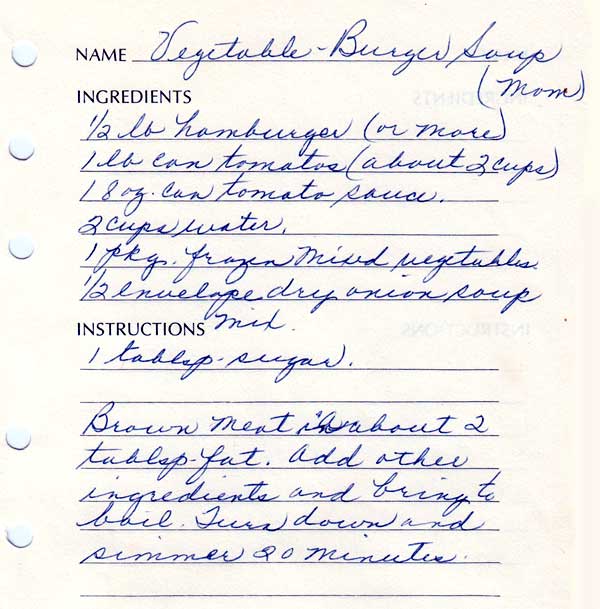 NAME Vegetable-Burger Soup
(Mom)
INGREDIENTS
1/2 lb hamburger (or more)
1 lb can tomatos (about 2 cups)
1 8 oz. can tomato sauce.
2 cups water.
1 pkg. frozen mixed vegetables.
1/2 envelope dry onion soup
INSTRUCTIONS mix.
1 tablsp. sugar.
Brown meat in about 2
tablsp. fat. Add other
ingredients and bring to
boil. Turn down and
simmer 20 minutes.